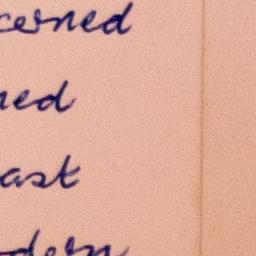 cerned
ned
ast
dern